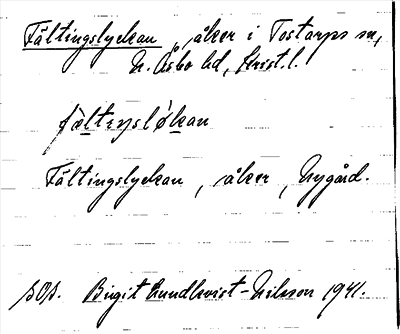 Fältingslyckan, åker i Tostarps sn,
N. Åsbo hd, Krist. l.
fæltıŋsløkan
Fältingslyckan, åker, Nygård.
SOS. Birgit Lundkvist-Nilsson 1941.